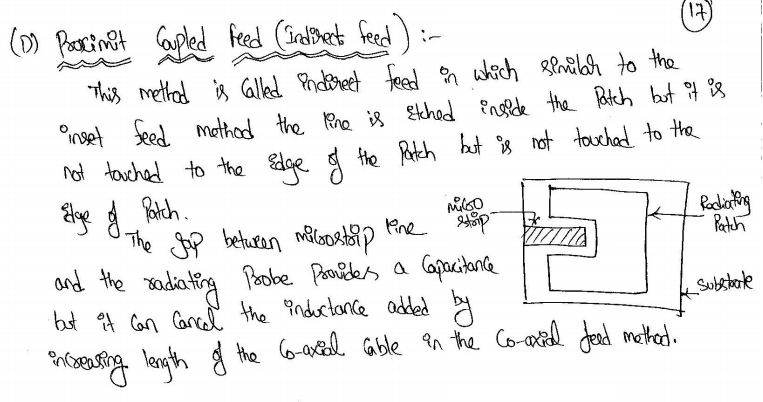 17
(D) Proximit Coupled feed (Indirect feed) :-
This method is Called indirect feed in which similar to the
inset feed method the line is Etched inside the Patch but it is
not touched to the Edge of the Patch but is not touched to the
Edge of Patch.
The gap between microstrip line
and the radiating Probe Provides a Capacitance
but it Can Cancel the inductance added by
increasing length of the Co-axial Cable in the Co-axial feed method.
micro
strip
Radiating
Patch
Substrate